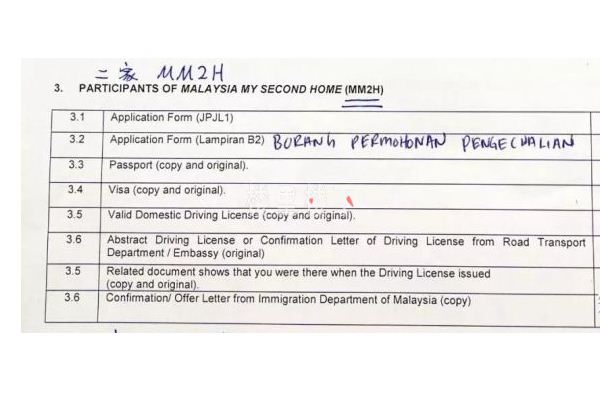 二家 MM2H
3. PARTICIPANTS OF MALAYSIA MY SECOND HOME (MM2H)
3.1 Application Form (JPJL1)
3.2 Application Form (Lampiran B2) BORANG PERMOHONAN PENGECUALIAN
3.3 Passport (copy and original).
3.4 Visa (copy and original).
3.5 Valid Domestic Driving License (copy and original).
3.6 Abstract Driving License or Confirmation Letter of Driving License from Road Transport
Department / Embassy (original)
3.5 Related document shows that you were there when the Driving License issued
(copy and original).
3.6 Confirmation/ Offer Letter from Immigration Department of Malaysia (copy)